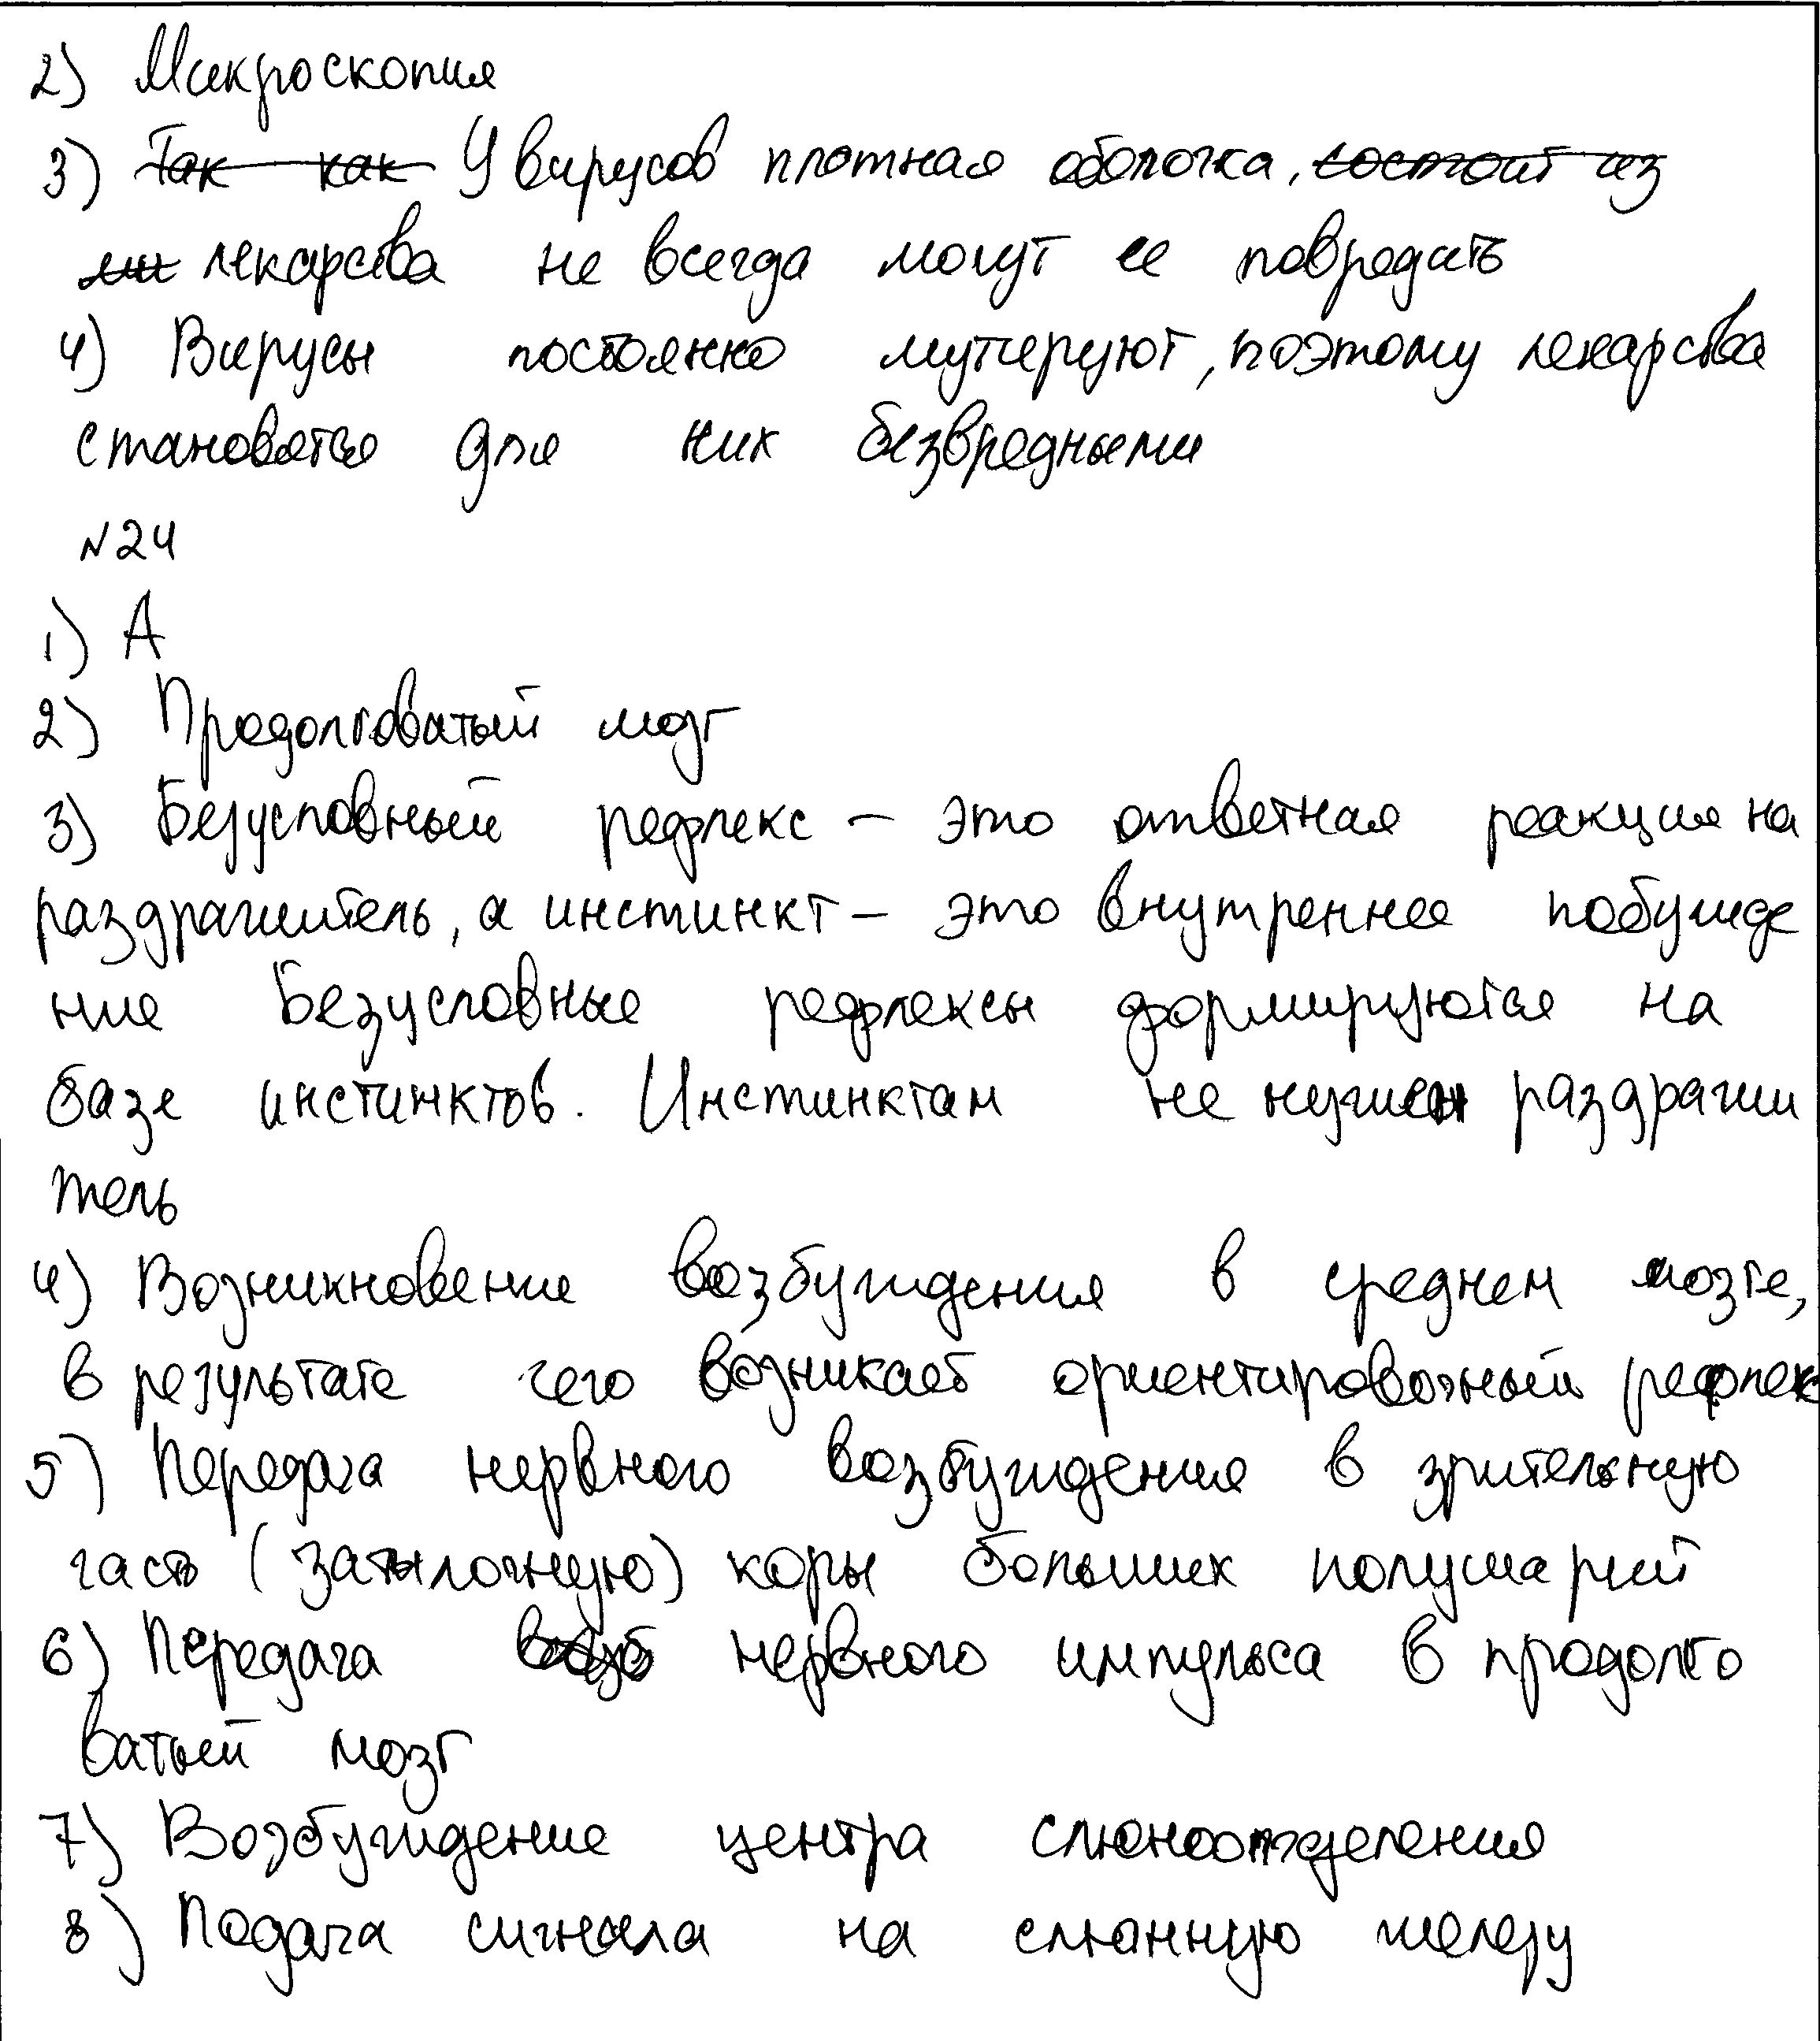 2) Микроскопия
3) Так как У вирусов плотная оболочка, состоит из
ли лекарства не всегда могут ее повредать
4) Вирусы постоянно мутируют, поэтому лекарства
становятся для них безвредными
№24
1) А
2) Продолговатый мозг
3) Безусловный рефлекс – это ответная реакция на
раздражитель, а инстинкт – это внутреннее побужде
ние Безусловные рефлексы формируются на
базе инстинктов. Инстинктам не нужен раздражи
тель
4) Возникновение возбуждения в среднем мозге,
в результате чего возникает ориентировочный рефлекс
5) Передача нервного возбуждения в зрительную
часть (затылочную) коры больших полушарий
6) Передача нервного импульса в продолго
ватый мозг
7) Возбуждение центра слюноотделения
8) Подача сигнала на слюнную железу